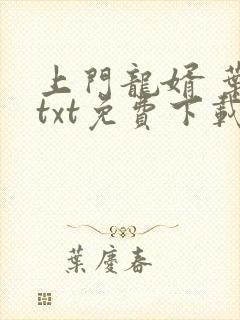 上門龍婿 葉
txt免費下載
葉慶春